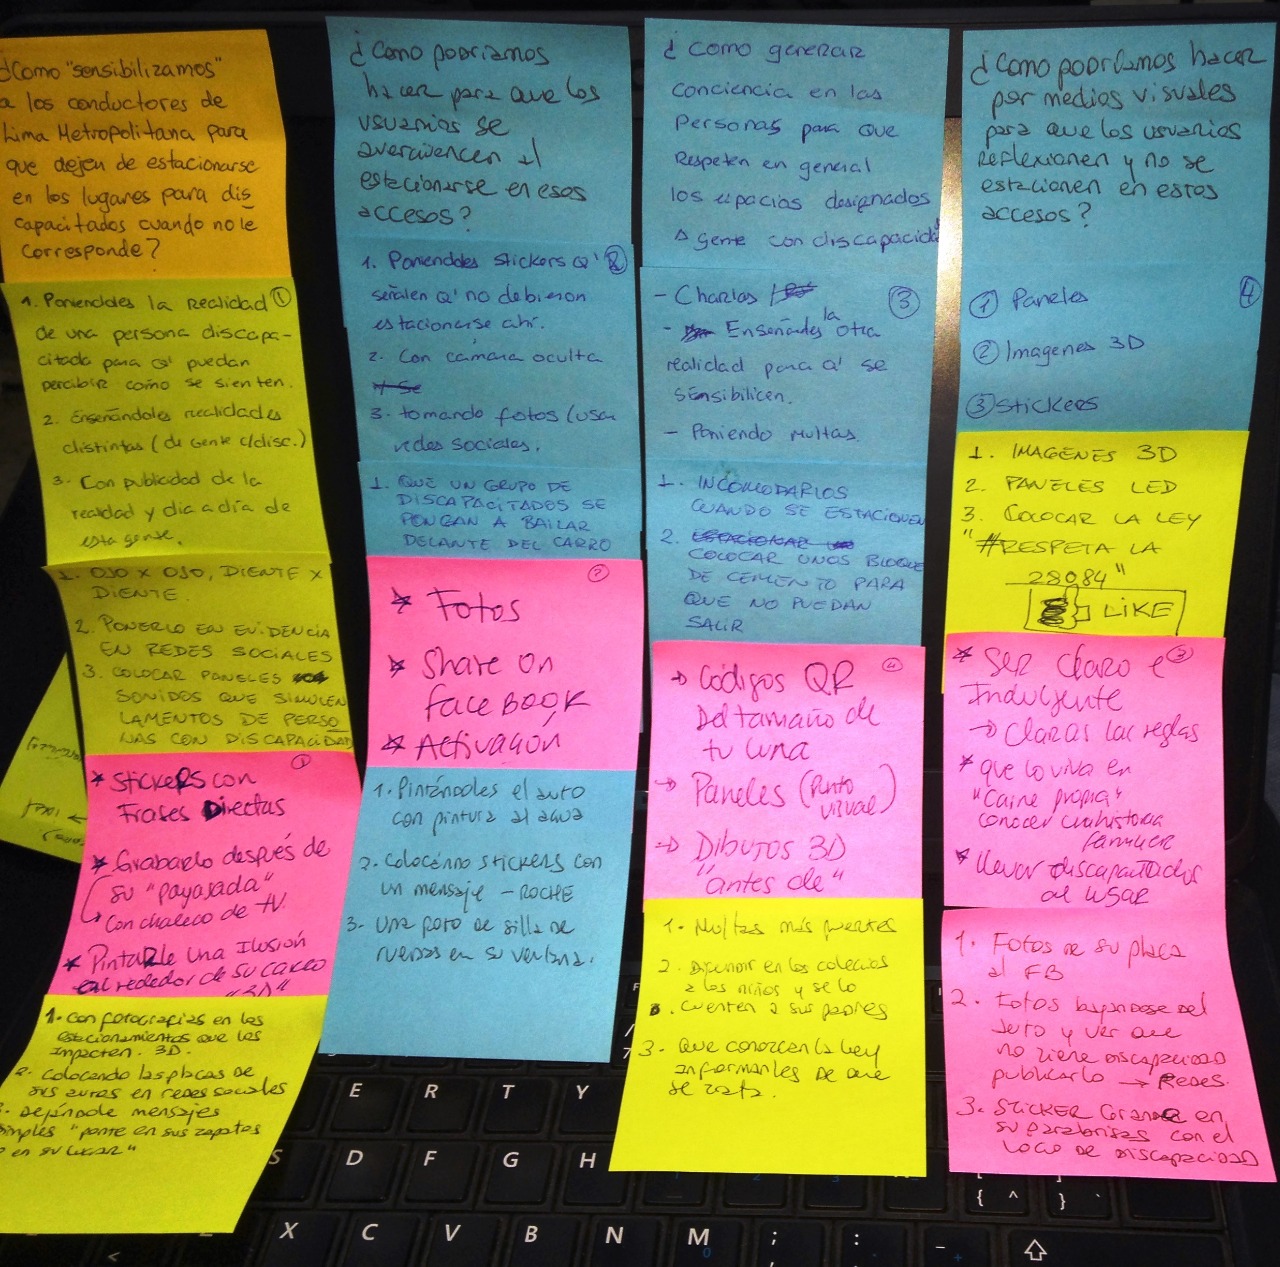 ¿Como "sensibilizamos"
a los conductores de
Lima Metropolitana para
que dejen de estacionarse
en los lugares para dis
capacitados cuando no le
corresponde?
1. Poniendoles la realidad ①
de una persona discapa-
citada para q' puedan
percibir como se sienten.
2. Enseñándoles realidades
distintas (de gente c/disc.)
3. Con publicidad de la
realidad y dia a día de
esta gense.
1. OJO X OJO, DIENTE X
DIENTE.
2. PONERLO EN EVIDENCIA
EN REDES SOCIALES
3. COLOCAR PANELES
SONIDOS QUE SIMULEN
LAMENTOS DE PERSO
NAS CON DISCAPACIDAD
* Stickers con
Frases Directas
* Grabarlo después de
su "payasada"
↳ Con chaleco de tv.
* Pintarle una Ilusión
alrededor de su carro
"3D"
1. Con fotografías en los
estacionamientos que los
impacten. 3D.
2. Colocando las placas de
sus autos en redes sociales
3. Dejándole mensajes
simples "ponte en sus zapatos
o en su lugar"
¿Como podriamos
hacer para que los
usuarios se
avergüencen al
estacionarse en esos
accesos?
1. Poniendoles stickers q' ②
señalen q' no debieron
estacionarse ahí.
2. Con cámara oculta
3. tomando fotos (usar
redes sociales.
1. QUE UN GRUPO DE
DISCAPACITADOS SE
PONGAN A BAILAR
DELANTE DEL CARRO
* Fotos
* Share on
facebook
* Activación
1. Pintándoles el auto
con pintura al agua
2. Colocando stickers con
un mensaje - ROCHE
3. Una foto de silla de
ruedas en su ventana.
¿Como generar
conciencia en las
personas para que
respeten en general
los espacios designados
a gente con discapacidad
- Charlas ③
- Enseñarles la otra
realidad para q' se
sensibilicen.
- Poniendo multas.
1. INCOMODARLOS
CUANDO SE ESTACIONEN
2. COLOCAR UNOS BLOQUE
DE CEMENTO PARA
QUE NO PUEDAN
SALIR
→ Códigos QR
Del tamaño de
tu luna
→ Paneles (Punto
visual)
→ Dibujos 3D
"antes de"
1. Multas más fuertes
2. Difundir en los colegios
a los niños y se lo
cuenten a sus padres
3. Que conozcan la ley
informarles de que
se trata.
¿Como podríamos hacer
por medios visuales
para que los usuarios
reflexionen y no se
estacionen en estos
accesos?
① Paneles ④
② Imagenes 3D
③ Stickers
1. IMAGENES 3D
2. PANELES LED
3. COLOCAR LA LEY
"#RESPETA LA
28084"
LIKE
* Ser claro e
Indulgente
→ Claras las reglas
* que lo viva en
"Carne propia"
conocer una historia
familiar
* llevar discapacitados
al lugar
1. Fotos de su placa
al FB
2. Fotos bajandose del
auto y ver que
no tiene discapacidad
publicarlo → Redes.
3. Sticker Grande en
su parabrisas con el
logo de discapacidad
E R T Y
S D F G H
X C V B N M